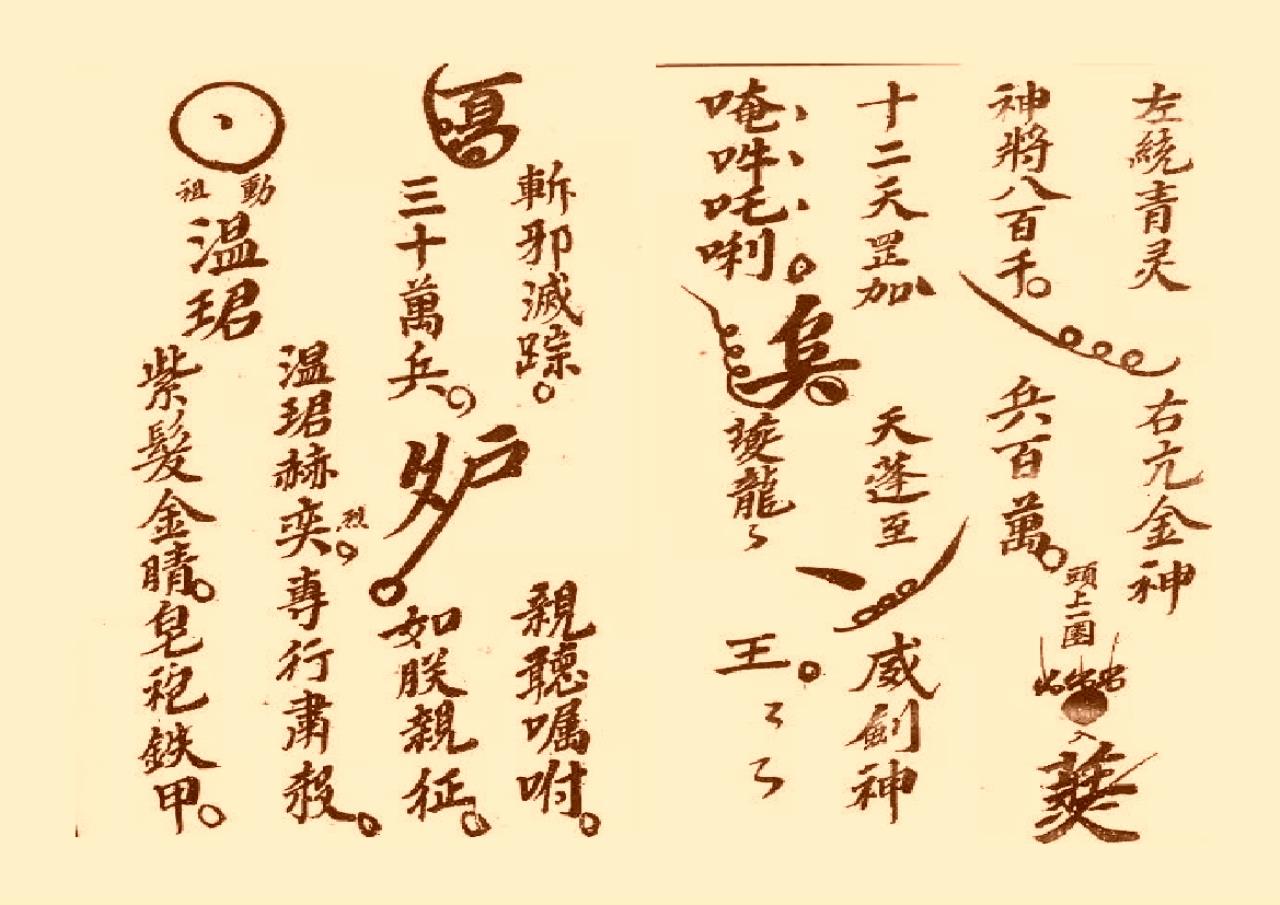 左繞青灵
右亢金神
神將八百千
兵百萬
頭上一圈
十二天罡加
天蓬至
威劍神
唵吽吒唎
龍
王
斬邪滅踪
親聽囑咐
三十萬兵
如朕親征
溫珺赫奕
烈
專行肅殺
動
祖
溫珺
紫髮金睛
皂袍鉄甲